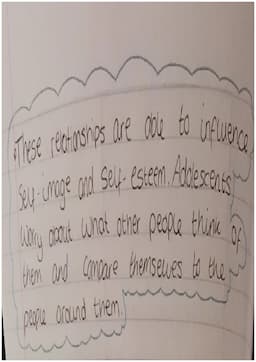 •These relationships are able to influence
self-image and self-esteem. Adolescents
worry about what other people think of
them and compare themselves to the
people around them.